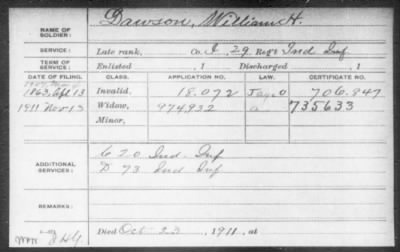 NAME OF SOLDIER: Dawson, William H.
SERVICE: Late rank, Co. I, 29 Reg't Ind Inf
TERM OF SERVICE: Enlisted , 1 Discharged , 1
DATE OF FILING. CLASS. APPLICATION NO. LAW. CERTIFICATE NO.
1863, Apl 13 Invalid, 18.072 706.847
1911 Nov 13 Widow, 974,932 a 735633
Minor,
ADDITIONAL SERVICES:
C 20 Ind Inf
D 73 Ind Inf
REMARKS:
Died Oct 23, 1911, at